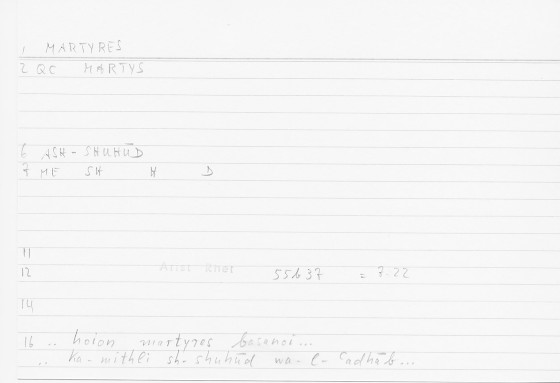 1 MARTYRES
2 QC MARTYS
6 ASH-SHUHŪD
7 ME SH H D
11
12 Arist Rhet 55b37 = 7.22
14
16 .. hoion martyres basanoi...
.. ka-mithli sh-shuhūd wa-l-ʿadhāb...